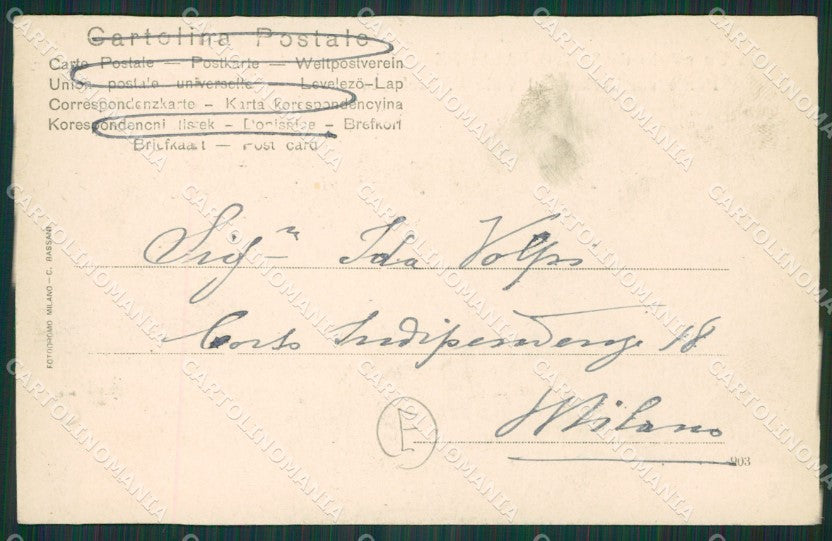 Cartolina Postale
Carte Postale — Postkarte — Weltpostverein
Union postale universelle — Levelező-Lap
Correspondenzkarte – Karta korespondencyina
Korespondencni listek – Dopisnice – Brefkort
Briefkaart — Post card
Sigⁿᵃ Ida Volpi
Corso Indipendenza 18
Milano
903
FOTODROMO MILANO – C. BASSANI
CARTOLINOMANIA